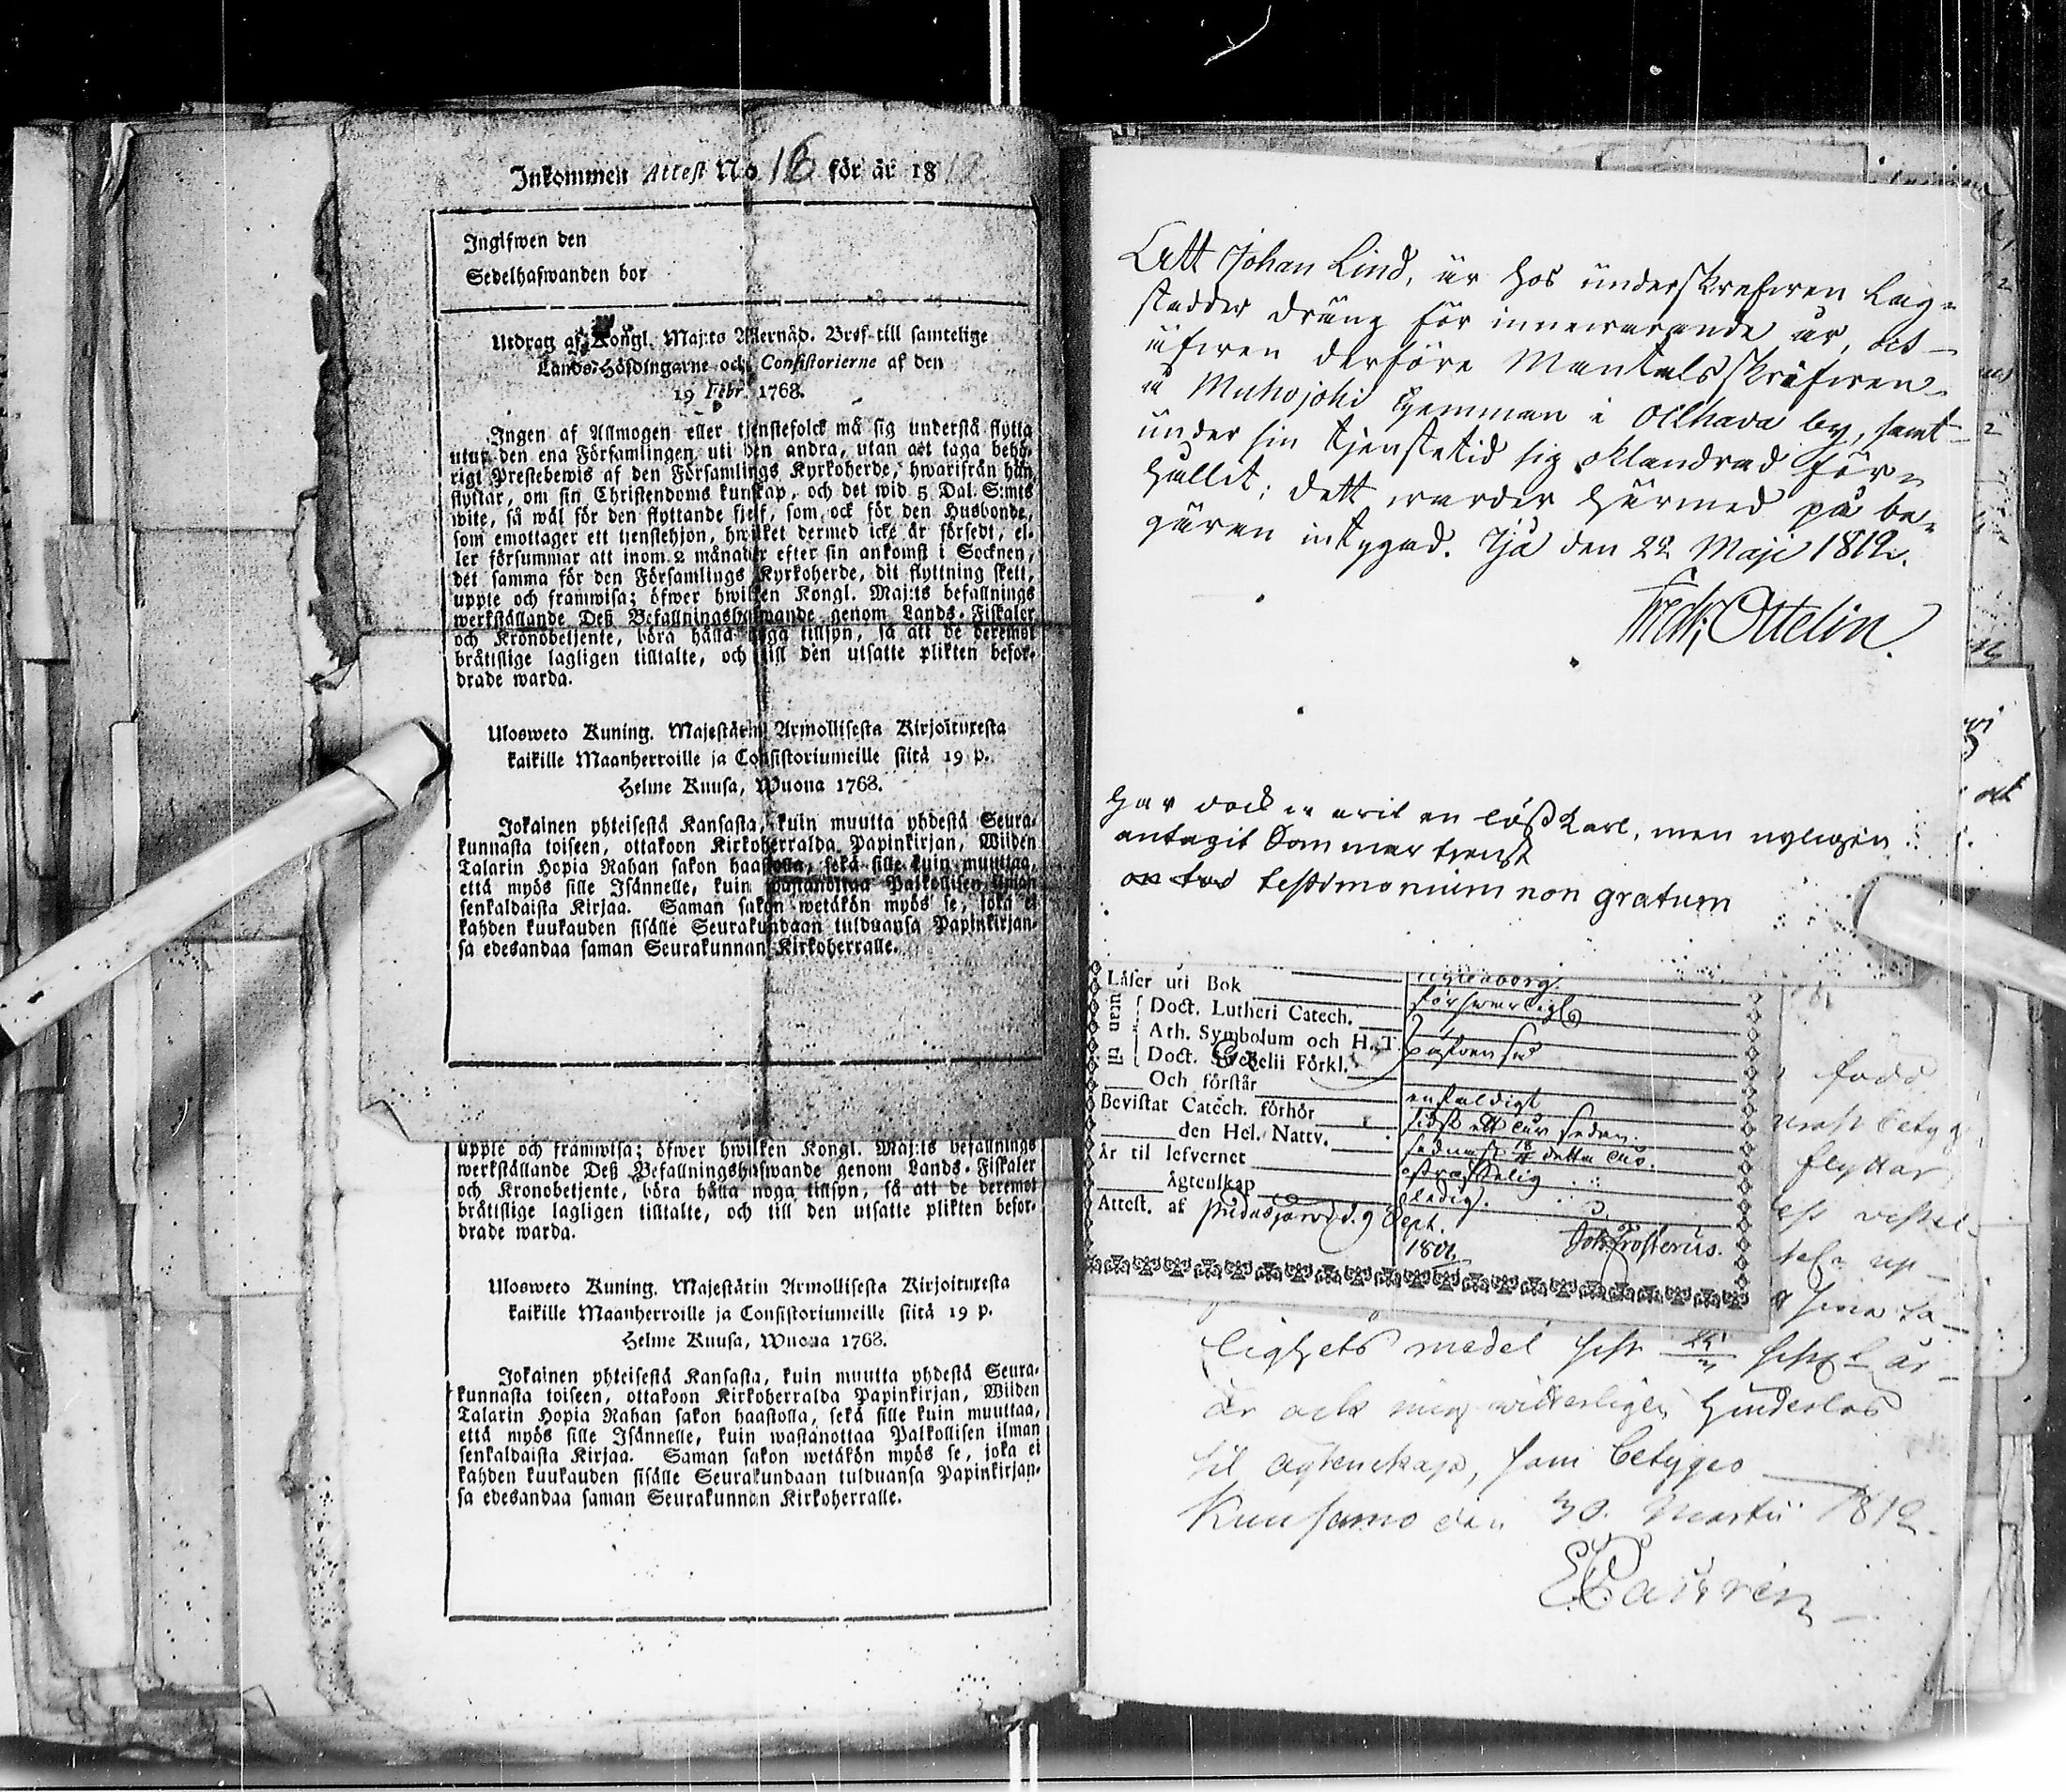 Inkommen Attest No 16 för år 1812
Inglfwen den
Sedelhafwanden bor
Utdrag af Kongl. Maj:ts Allernåd. Bref till samtelige
Lands-Höfdingarne och Consistorierne af den
19 Febr. 1768.
Ingen af Allmogen eller tjenstefolck må sig understå flytta
utur den ena Församlingen uti den andra, utan att taga behö-
rigt Prestebewis af den Församlings Kyrkoherde, hwarifrån han
flyttar, om sin Christendoms kunskap, och det wid 5 Dal. S:mts
wite, så wäl för den flyttande sjelf, som ock för den Husbonde,
som emottager ett tjenstehjon, hwilket dermed icke är försedt, el-
ler försummar att inom 2 månader efter sin ankomst i Socknen,
det samma för den Församlings Kyrkoherde, dit flyttning skett,
uppte och framwisa; öfwer hwilken Kongl. Maj:ts befallnings
werkställande Deß Befallningshafwande genom Lands-Fiskaler
och Kronobetjente, böra hålla noga tillsyn, så att de deremot
bråttslige lagligen tilltalte, och till den utsatte plikten befor-
drade warda.
Ulosweto Kuning. Majestätin Armollisesta Kirjoituxesta
kaikille Maanherroille ja Consistoriumeille siitä 19 p.
Helme Kuusa, Wuona 1768.
Jokainen yhteisestä Kansasta, kuin muutta yhdestä Seura-
kunnasta toiseen, ottakoon Kirkoherralda Papinkirjan, Wiiden
Talarin Hopia Rahan sakon haastolla, sekä sille kuin muuttaa,
että myös sille Isännelle, kuin wastanottaa Palkollisen ilman
senkaldaista Kirjaa. Saman sakon wetäkön myös se, joka ei
kahden kuukauden sisälle Seurakundaan tulduansa Papinkirjan-
sa edesandaa saman Seurakunnan Kirkoherralle.
uppte och framwisa; öfwer hwilken Kongl. Maj:ts befallnings
werkställande Deß Befallningshafwande genom Lands-Fiskaler
och Kronobetjente, böra hålla noga tillsyn, så att de deremot
bråttslige lagligen tilltalte, och till den utsatte plikten befor-
drade warda.
Ulosweto Kuning. Majestätin Armollisesta Kirjoituxesta
kaikille Maanherroille ja Consistoriumeille siitä 19 p.
Helme Kuusa, Wuona 1768.
Jokainen yhteisestä Kansasta, kuin muutta yhdestä Seura-
kunnasta toiseen, ottakoon Kirkoherralda Papinkirjan, Wiiden
Talarin Hopia Rahan sakon haastolla, sekä sille kuin muuttaa,
että myös sille Isännelle, kuin wastanottaa Palkollisen ilman
senkaldaista Kirjaa. Saman sakon wetäkön myös se, joka ei
kahden kuukauden sisälle Seurakundaan tulduansa Papinkirjan-
sa edesandaa saman Seurakunnan Kirkoherralle.
Att Johan Lind, är hos underskrefwen Lag-
stadder dräng för innewarande år, och
äfwen derföre Mantalsskrifwen
å Muhojoki hemman i Olhava by, samt
under sin tjenstetid sig oklandrad för-
hållit; dett warder härmed på be-
gäran intygad. Ijo den 22 Maji 1812.
Fredr; Ottelin
har dock varit en lösKarl, men nyligen
antagit Sommar tienst
testimonium non gratum
Läser uti Bok
Doct. Lutheri Catech. försvarligt
Ath. Symbolum och H. T.
utan til
Doct. Förkl.
Och förstår enfaldigt
Bevistat Catech. förhör sidst ett år sedan.
den Hel. Nattv. detta år.
Är til lefvernet ostraffelig
Ägtenskap ledig.
Attest. af Pudasjärvi d. 9 Sept.
Joh. Frosterus.
född
flyttar
lighets medel
är ock mig witterligen hinderlös
til Ägtenskap, som betygas
Kuusamo den 30. Martii 1812.